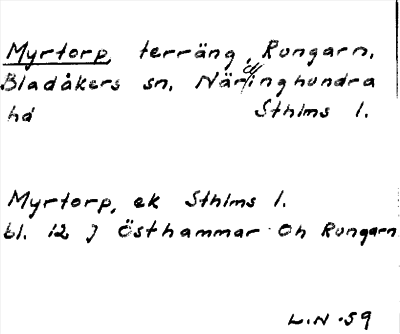 Myrtorp, terräng, Rungarn,
Bladåkers sn, Närdinghundra
hd Sthlms l.
Myrtorp, ek Sthlms l.
bl. 12 J Östhammar Oh Rungarn
L.N -59